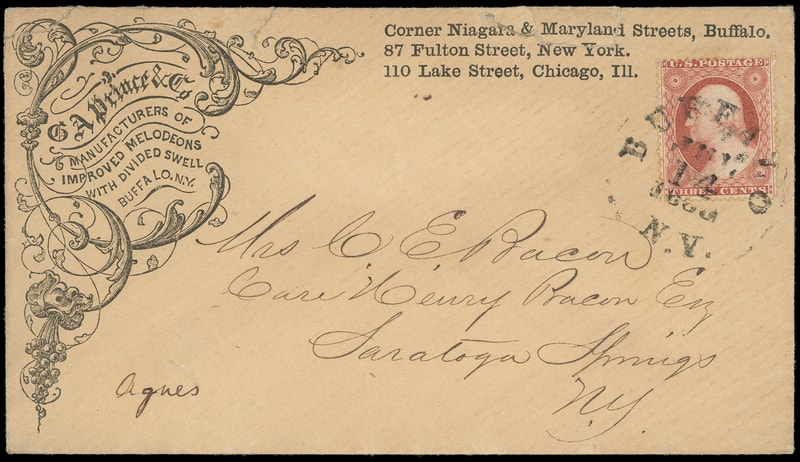 Corner Niagara & Maryland Streets, Buffalo.
87 Fulton Street, New York.
110 Lake Street, Chicago, Ill.
G A Prince & Co
MANUFACTURERS OF
IMPROVED MELODEONS
WITH DIVIDED SWELL
BUFFALO. N.Y.
U.S. POSTAGE
THREE CENTS
BUFFALO
14
N.Y.
Mrs C E Bacon
Care Henry Bacon Esq
Saratoga Springs
NY
Agnes